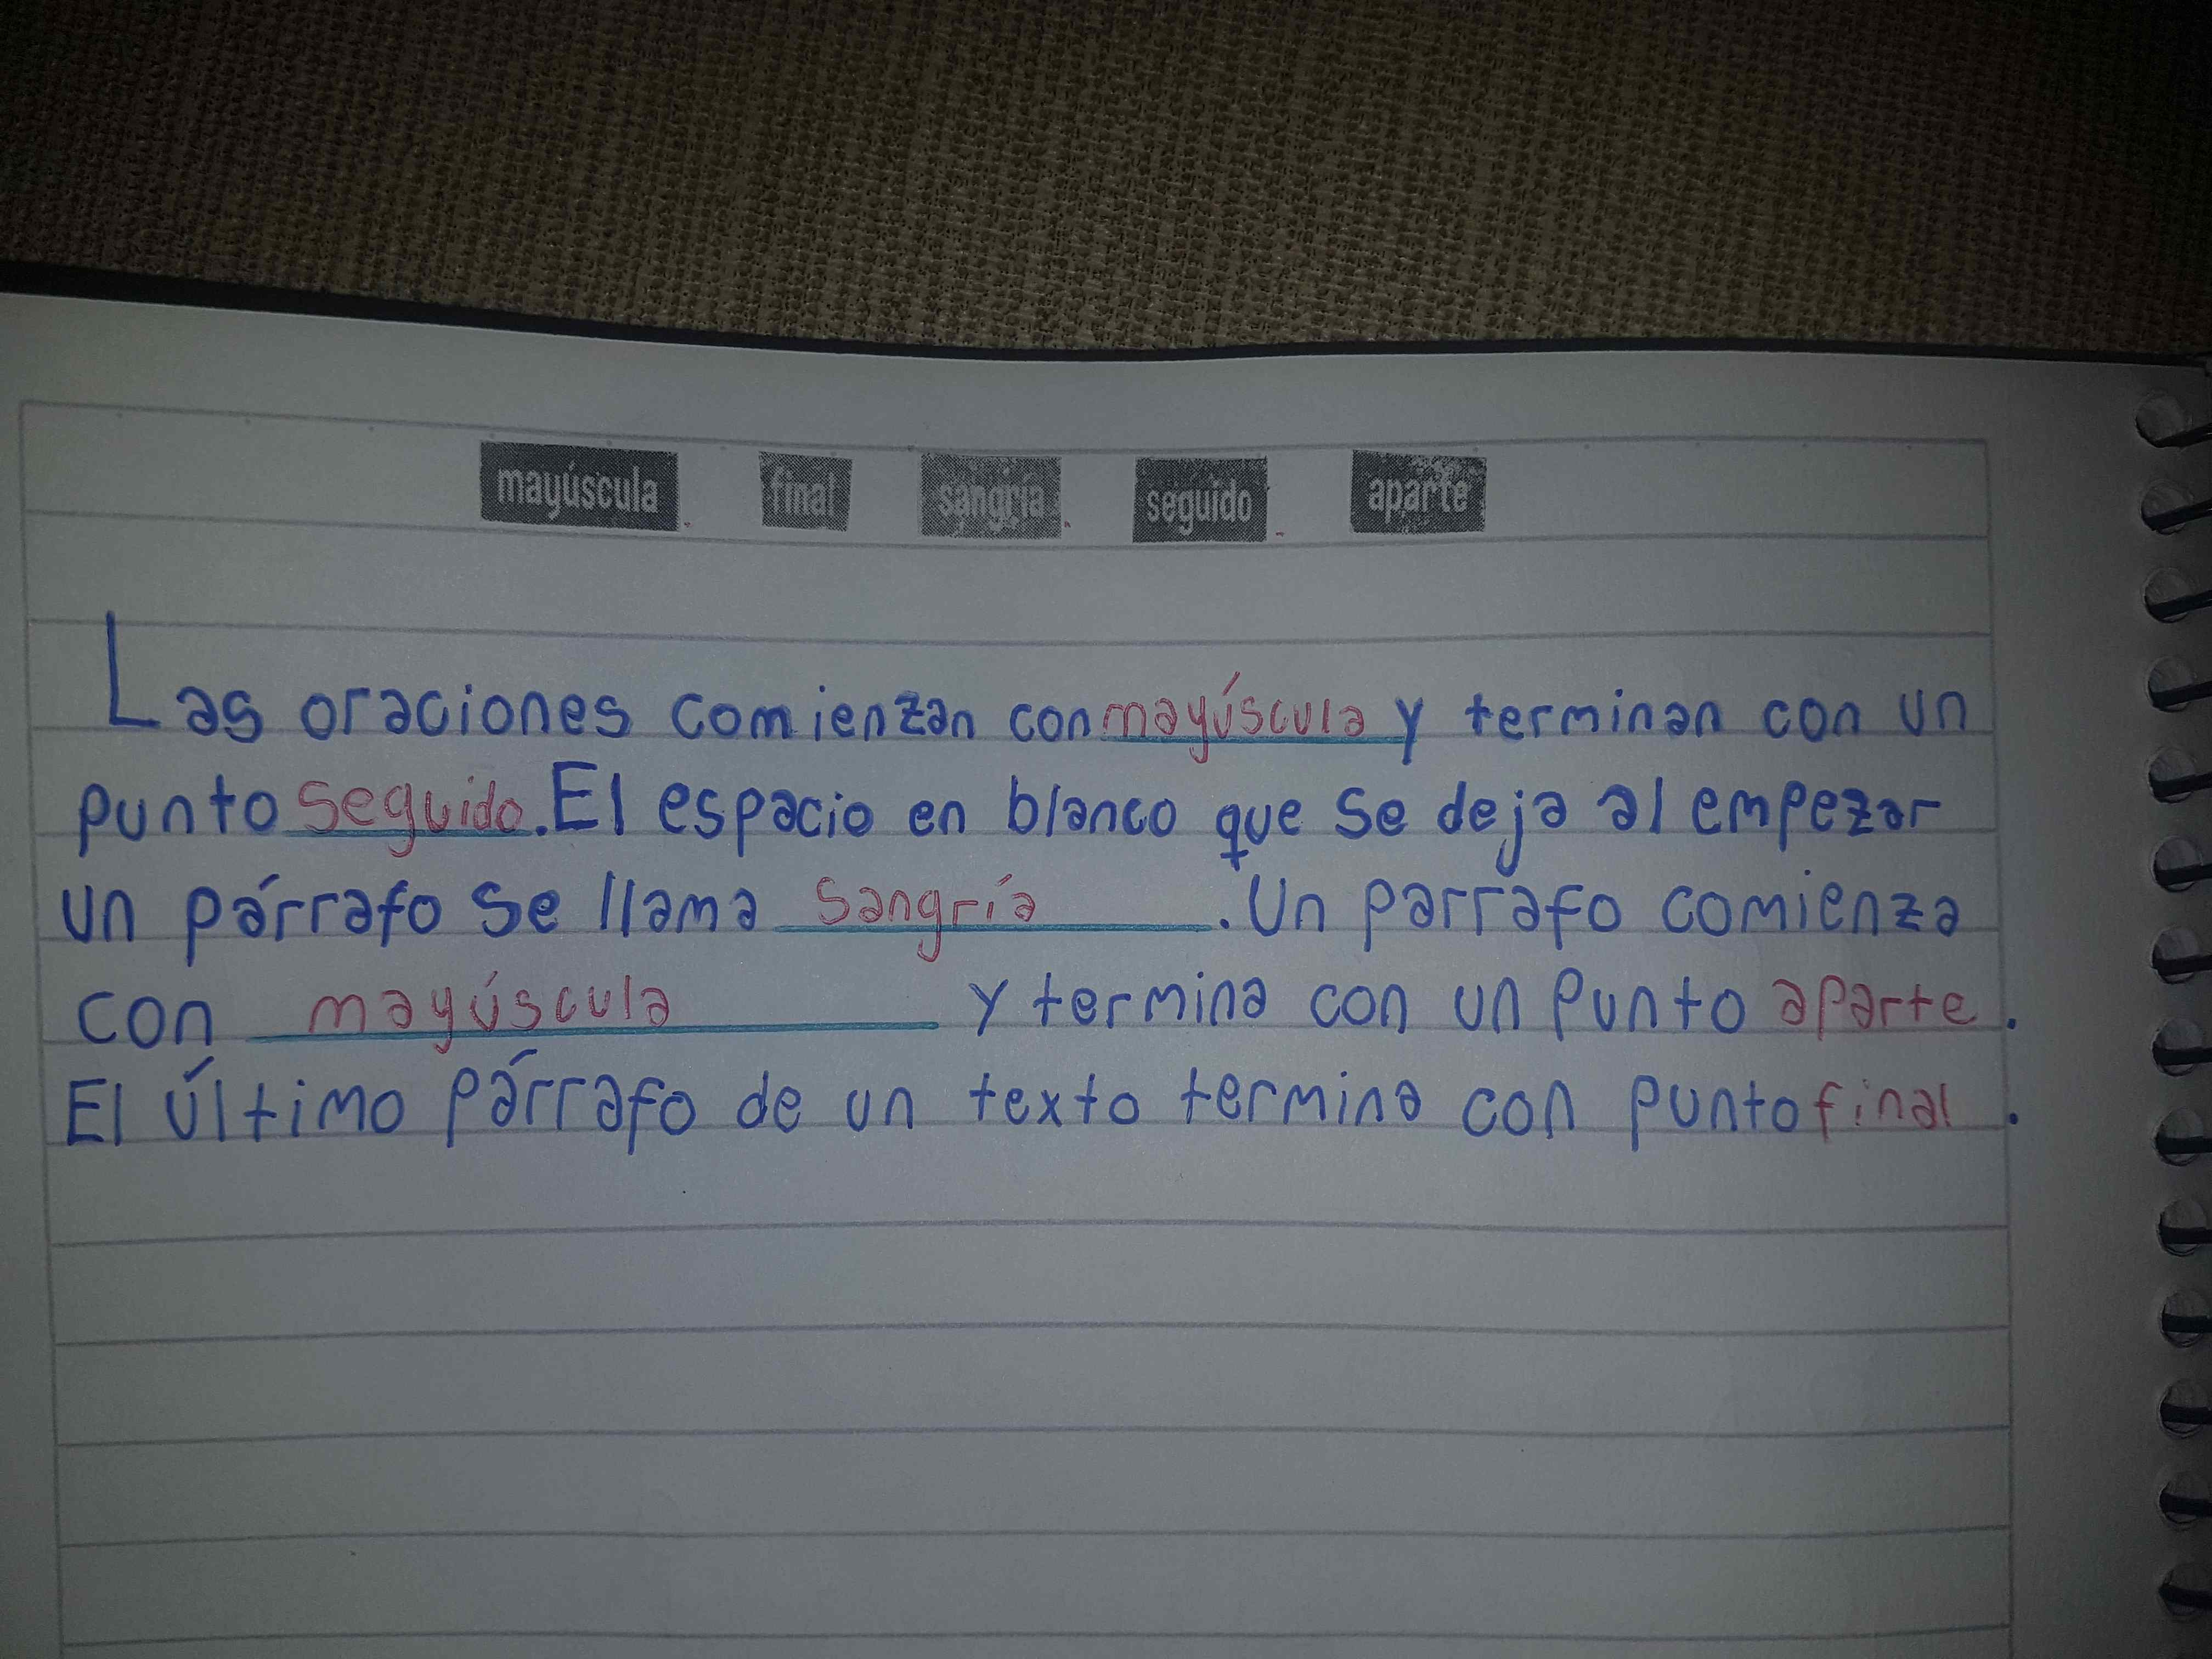 mayúscula final sangría seguido aparte
Las oraciones comienzan con mayúscula y terminan con un
punto seguido. El espacio en blanco que se deja al empezar
un párrafo se llama sangría. Un parrafo comienza
con mayúscula y termina con un punto aparte.
El último párrafo de un texto termina con punto final.